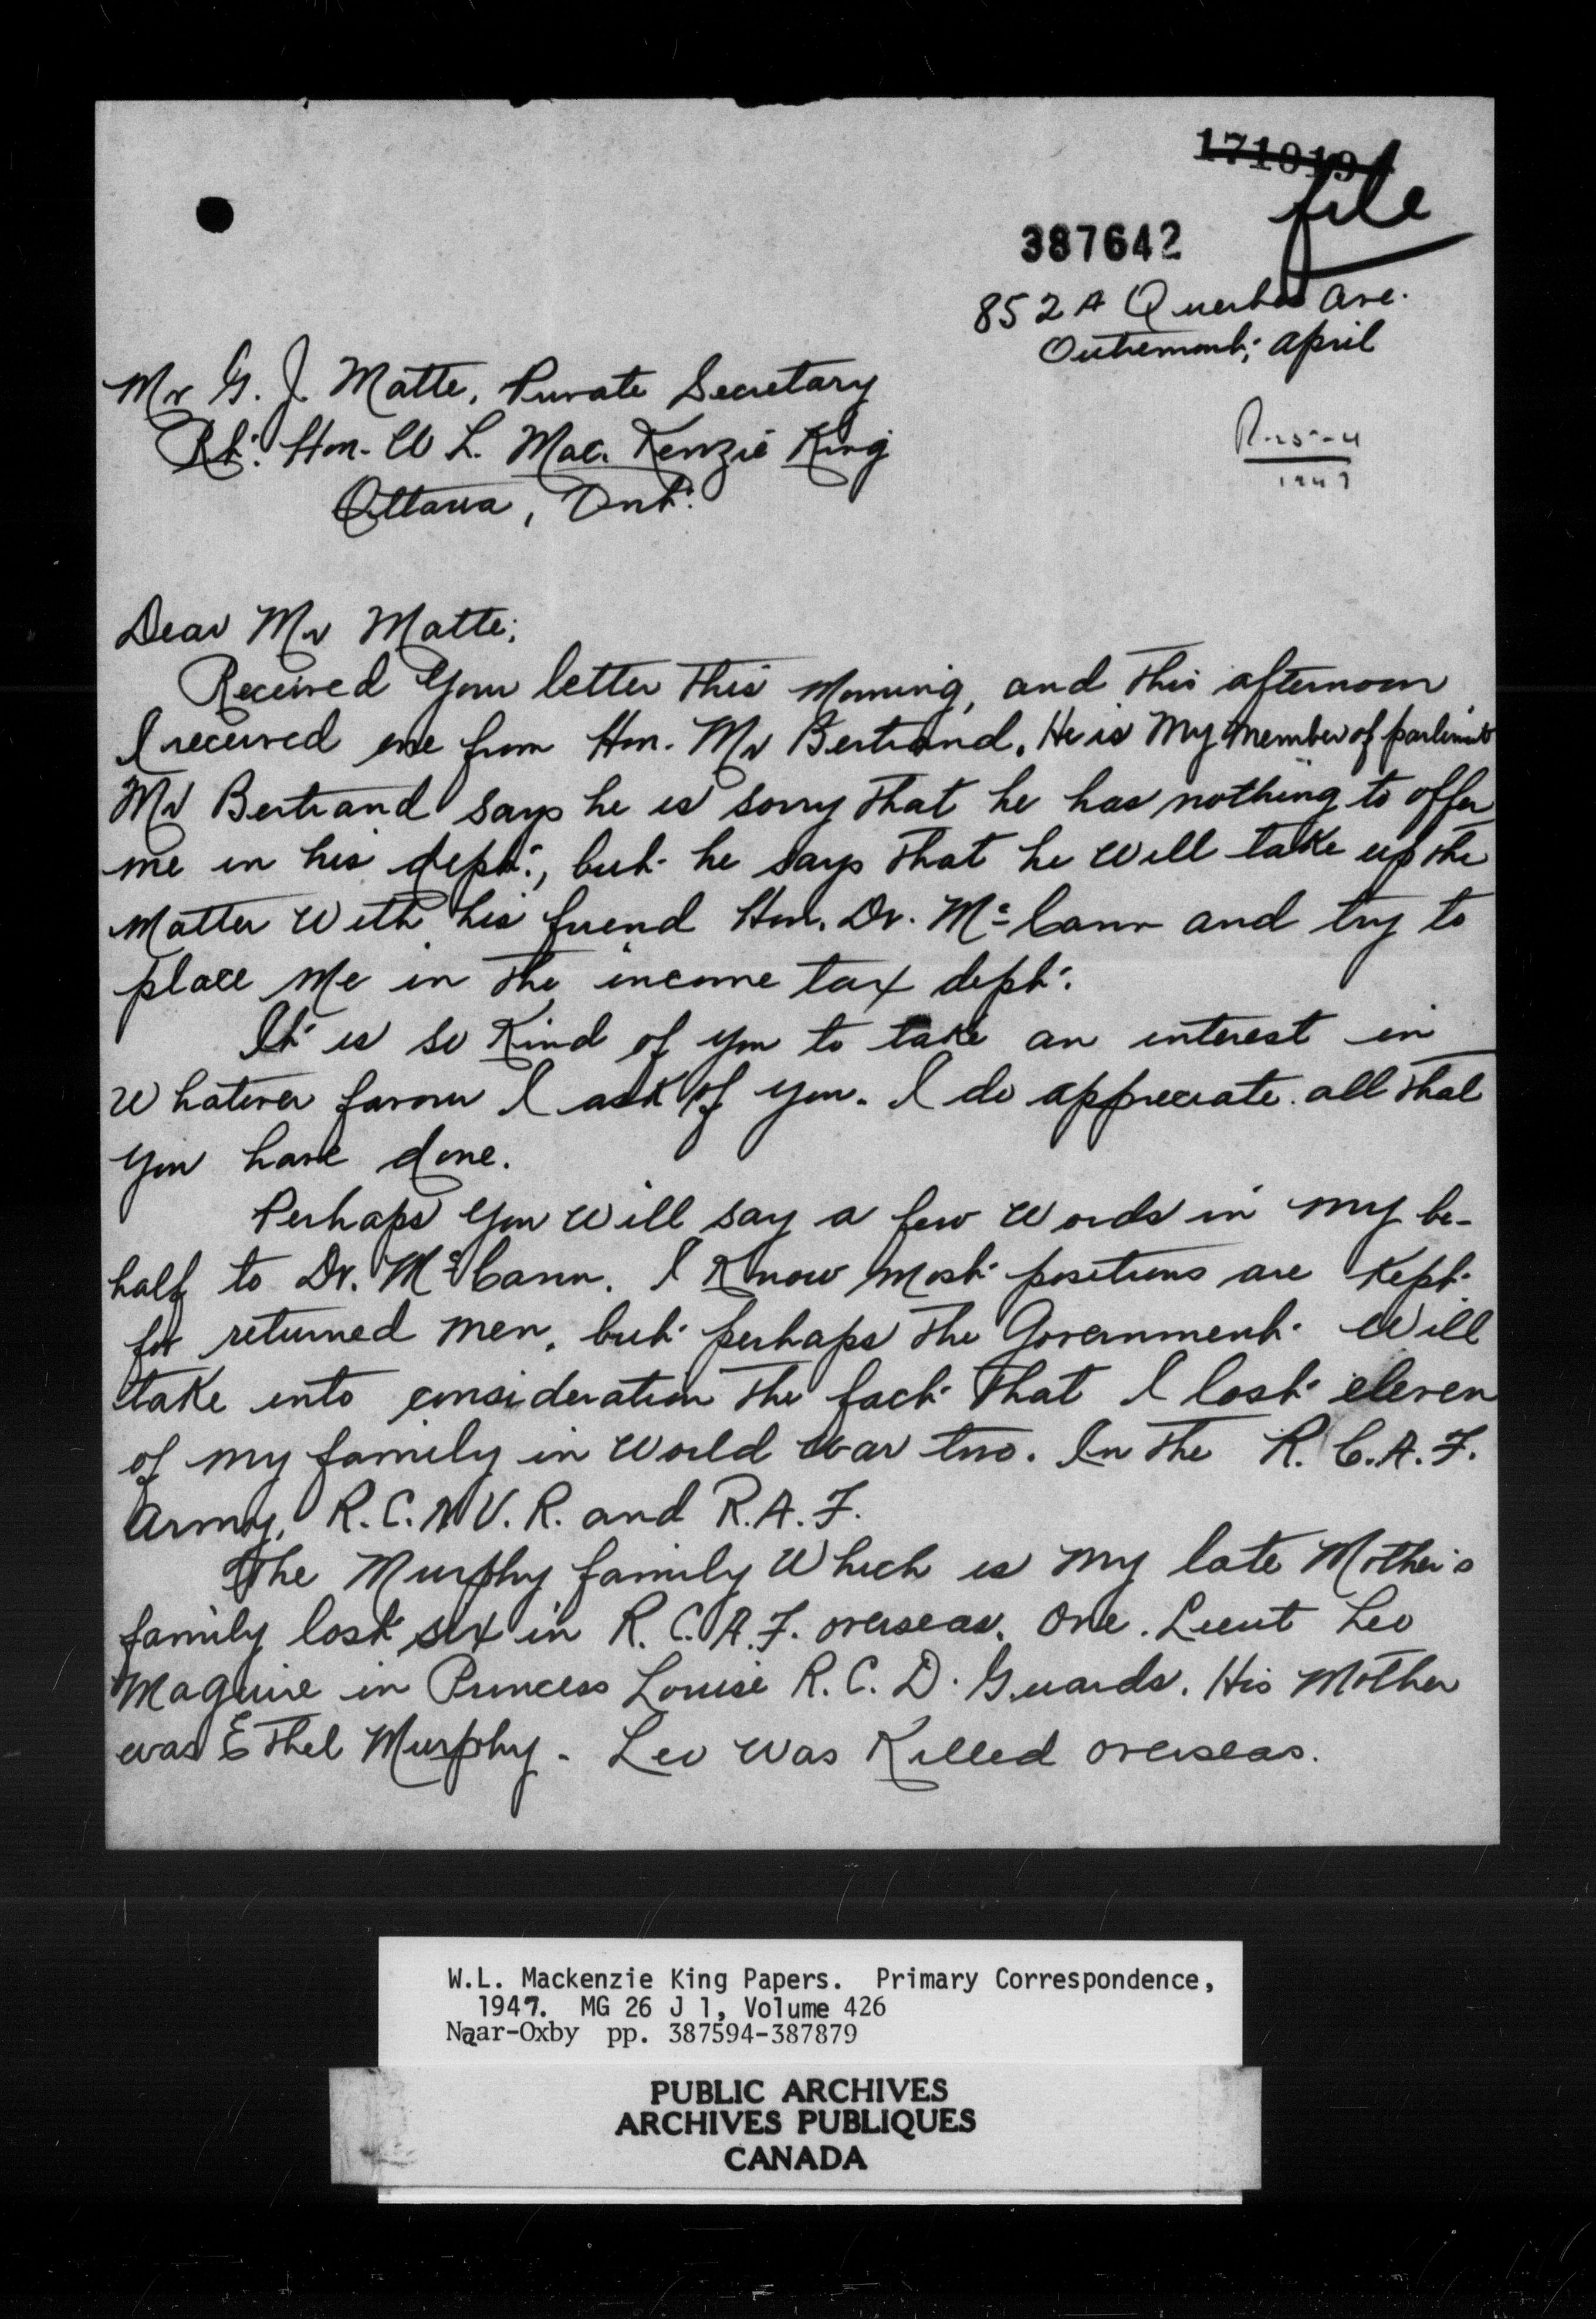 file
387642
852 A Querbes Ave.
Outremont; April
R-25-4
1947
Mr G. J. Matte, Private Secretary
Rt. Hon. W L. Mac. Kenzie King
Ottawa, Ont.
Dear Mr Matte;
Received your letter this morning, and this afternoon
I received one from Hon. Mr Bertrand. He is my member of parliment
Mr Bertrand says he is sorry that he has nothing to offer
me in his dept., but he says that he will take up the
matter with his friend Hon. Dr. McCann and try to
place me in the income tax dept.
It is so kind of you to take an interest in
whatever favour I ask of you. I do appreciate all that
you have done.
Perhaps you will say a few words in my be-
half to Dr. McCann. I know most positions are kept
for returned men, but perhaps the Government will
take into consideration the fact that I lost eleven
of my family in World War two. In the R. C. A. F.
Army, R. C. N V. R. and R. A. F.
The Murphy family which is my late Mother's
family lost six in R. C. A. F. overseas. One. Lieut Leo
Maguire in Princess Louise R. C. D. Guards. His Mother
was Ethel Murphy. Leo was killed overseas.
W.L. Mackenzie King Papers. Primary Correspondence,
1947. MG 26 J 1, Volume 426
Naar-Oxby pp. 387594-387879
PUBLIC ARCHIVES
ARCHIVES PUBLIQUES
CANADA